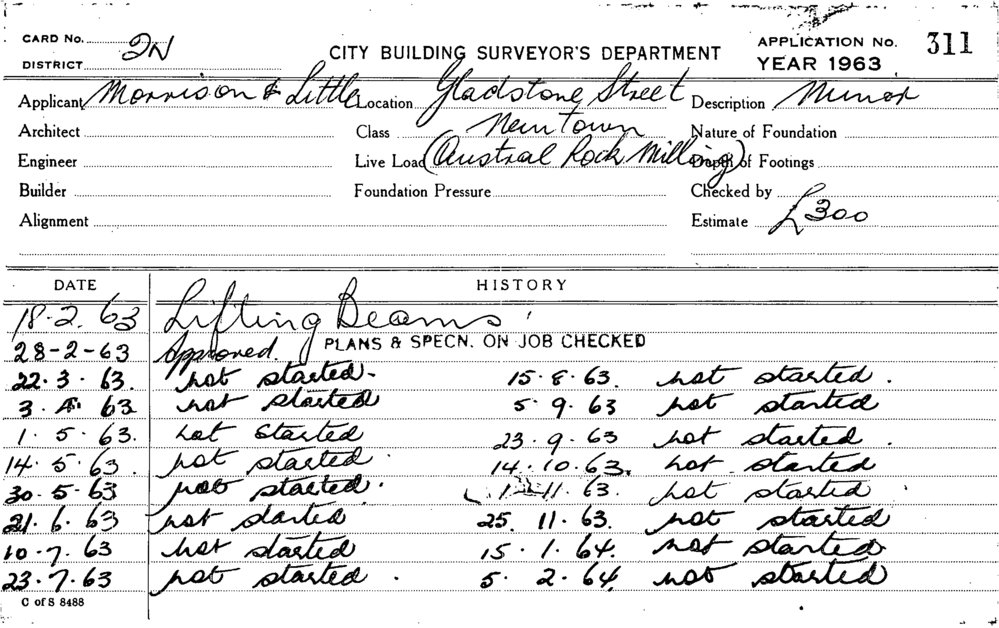 CARD No. 2N
DISTRICT
CITY BUILDING SURVEYOR'S DEPARTMENT
APPLICATION No. 311
YEAR 1963
Applicant Morrison & Little Location Gladstone Street Description Minor
Architect Class Newtown Nature of Foundation
Engineer Live Load (Austral Rock Milling) Depth of Footings
Builder Foundation Pressure Checked by
Alignment Estimate £300
DATE HISTORY
18.2.63 Lifting Beams
28-2-63 Approved. PLANS & SPECN. ON JOB CHECKED
22.3.63. not started. 15.8.63. not started.
3.4.63 not started 5.9.63 not started
1.5.63. not started 23.9.63 not started.
14.5.63. not started. 14.10.63. not started
30.5.63 not started. 1.11.63. not started
21.6.63 not started 25.11.63. not started
10.7.63 not started 15.1.64. not started
23.7.63 not started. 5.2.64 not started
C of S 8488